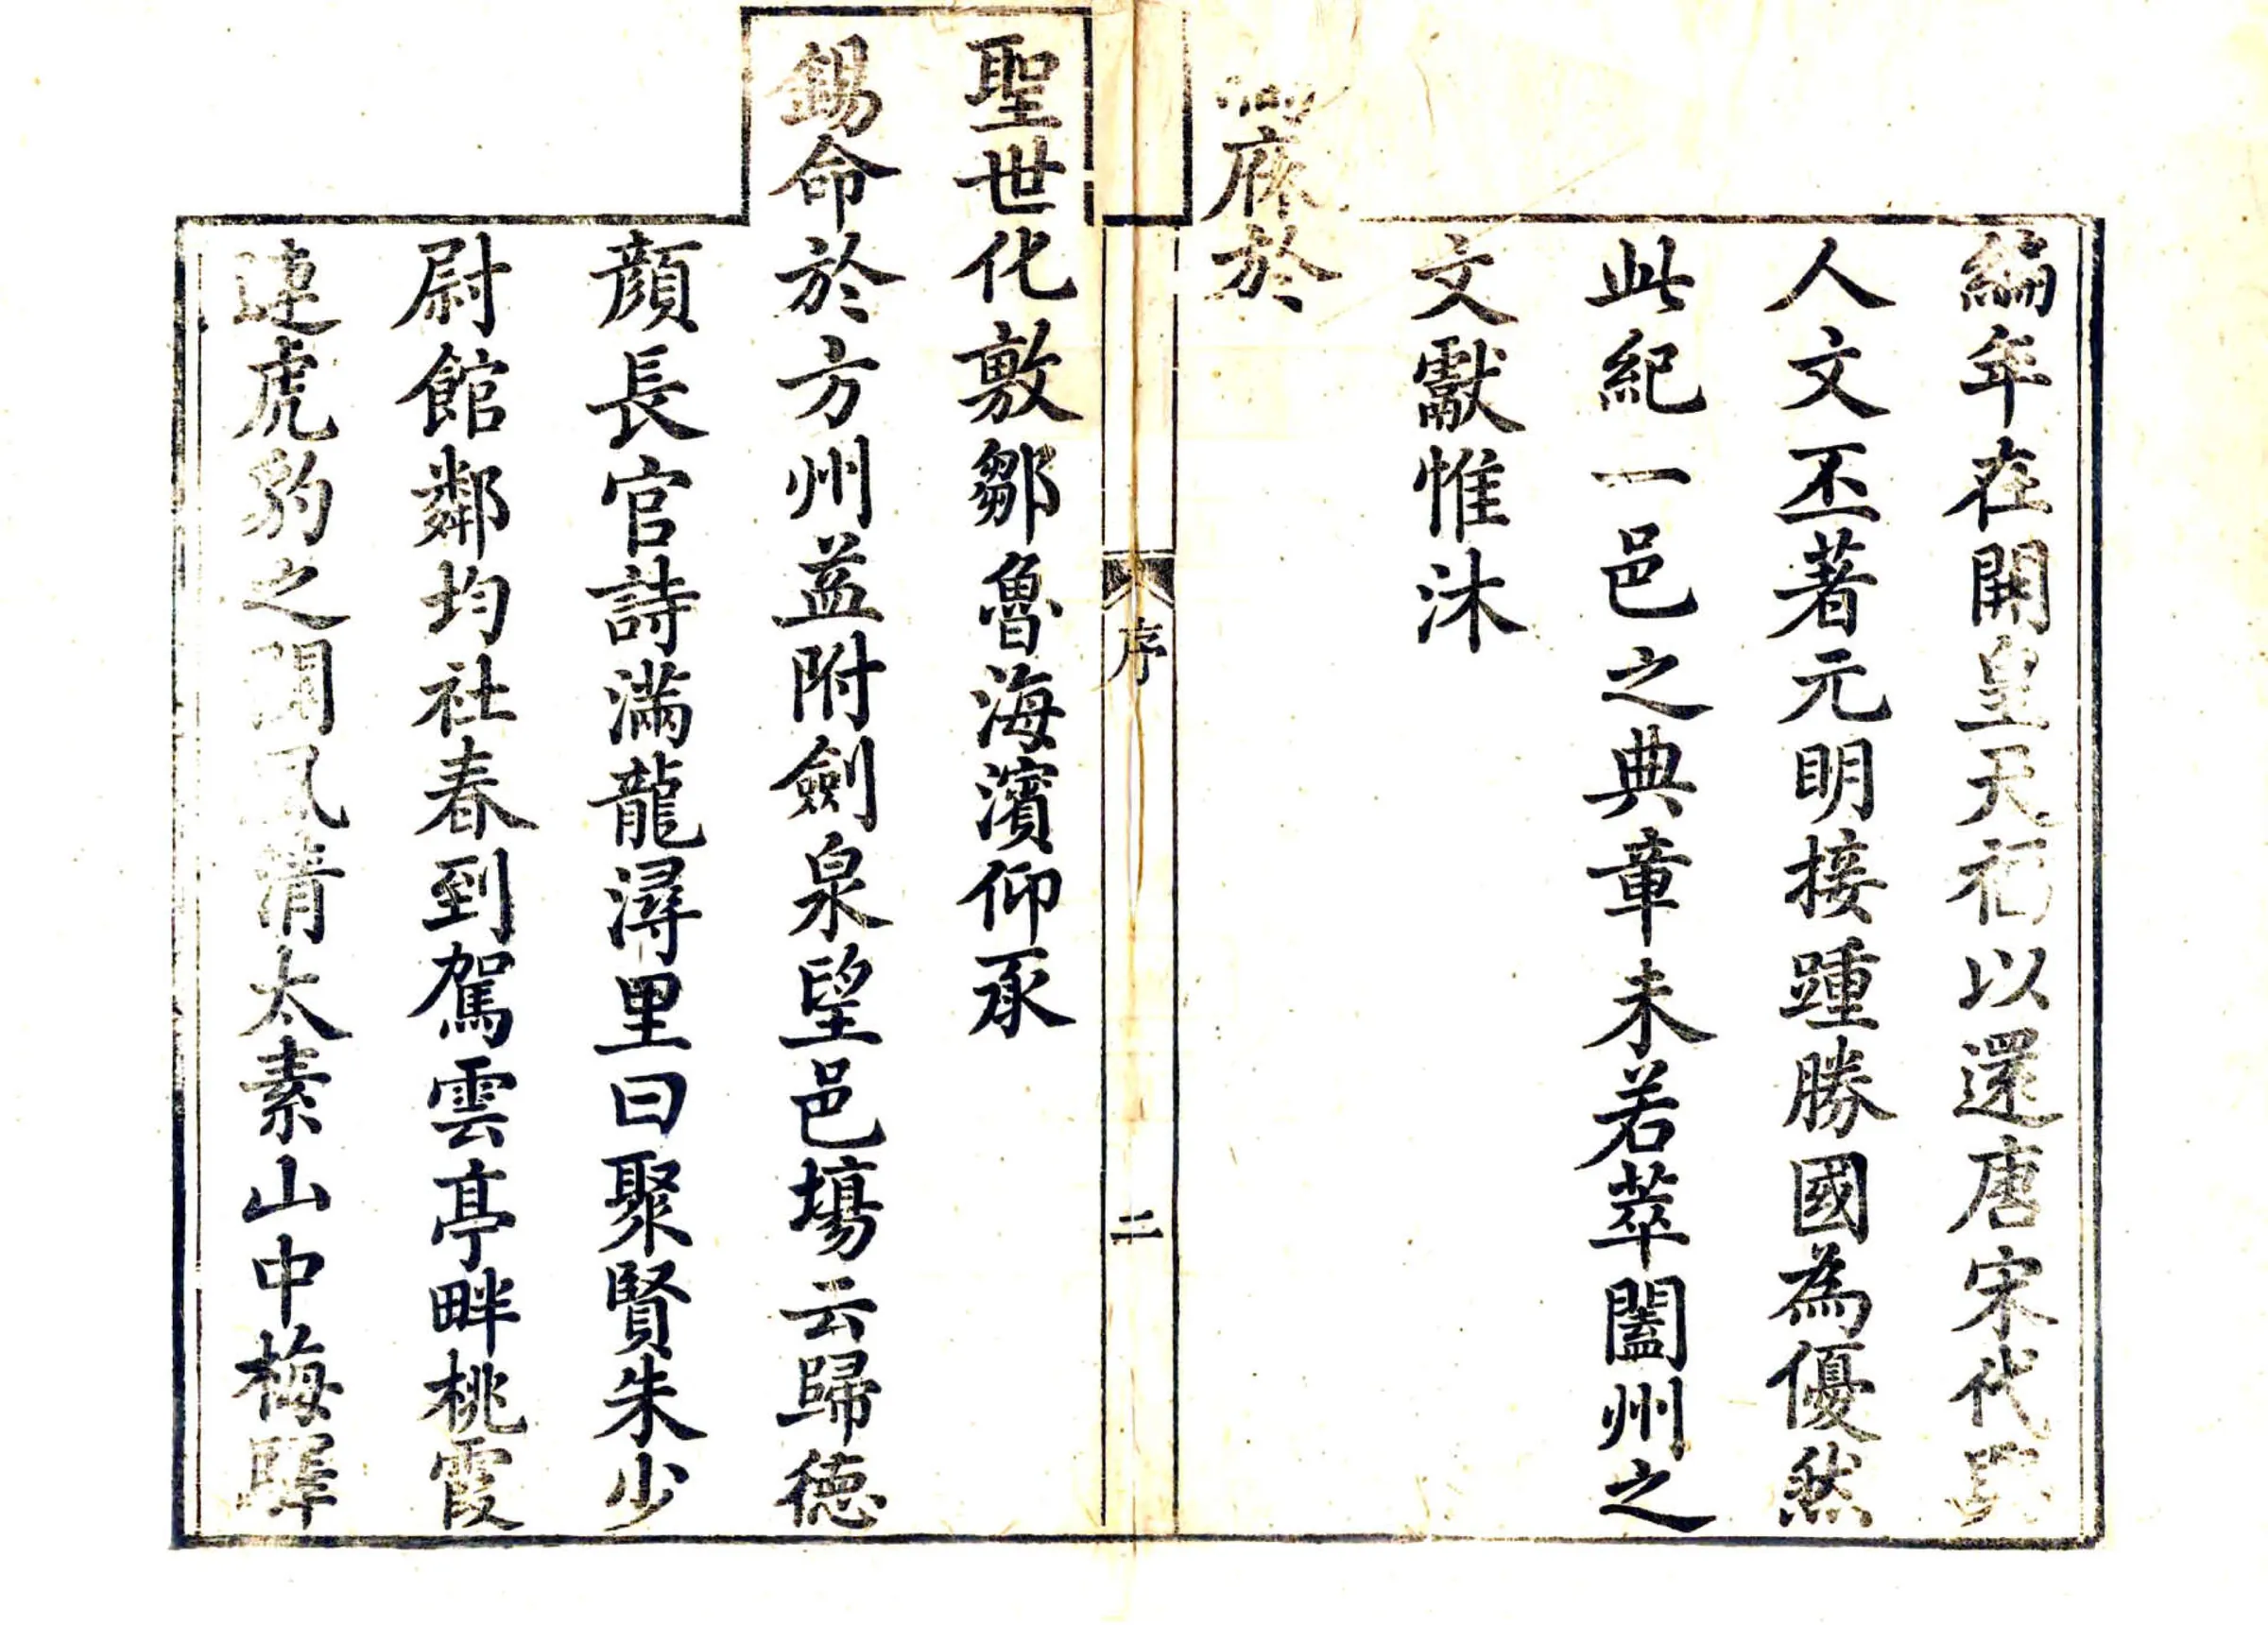 編年在開皇天福以還唐宋代興
人文丕著元明接踵勝國為優然
此紀一邑之典章未若萃闔州之
文獻惟沐
府於
序
二
聖世化敦鄒魯海濱仰承
錫命於方州益附劍泉望邑塲云歸德
顏長官詩滿龍潯里曰聚賢朱少
尉館鄰均社春到駕雲亭畔桃霞
連虎豹之關風清太素山中梅驛